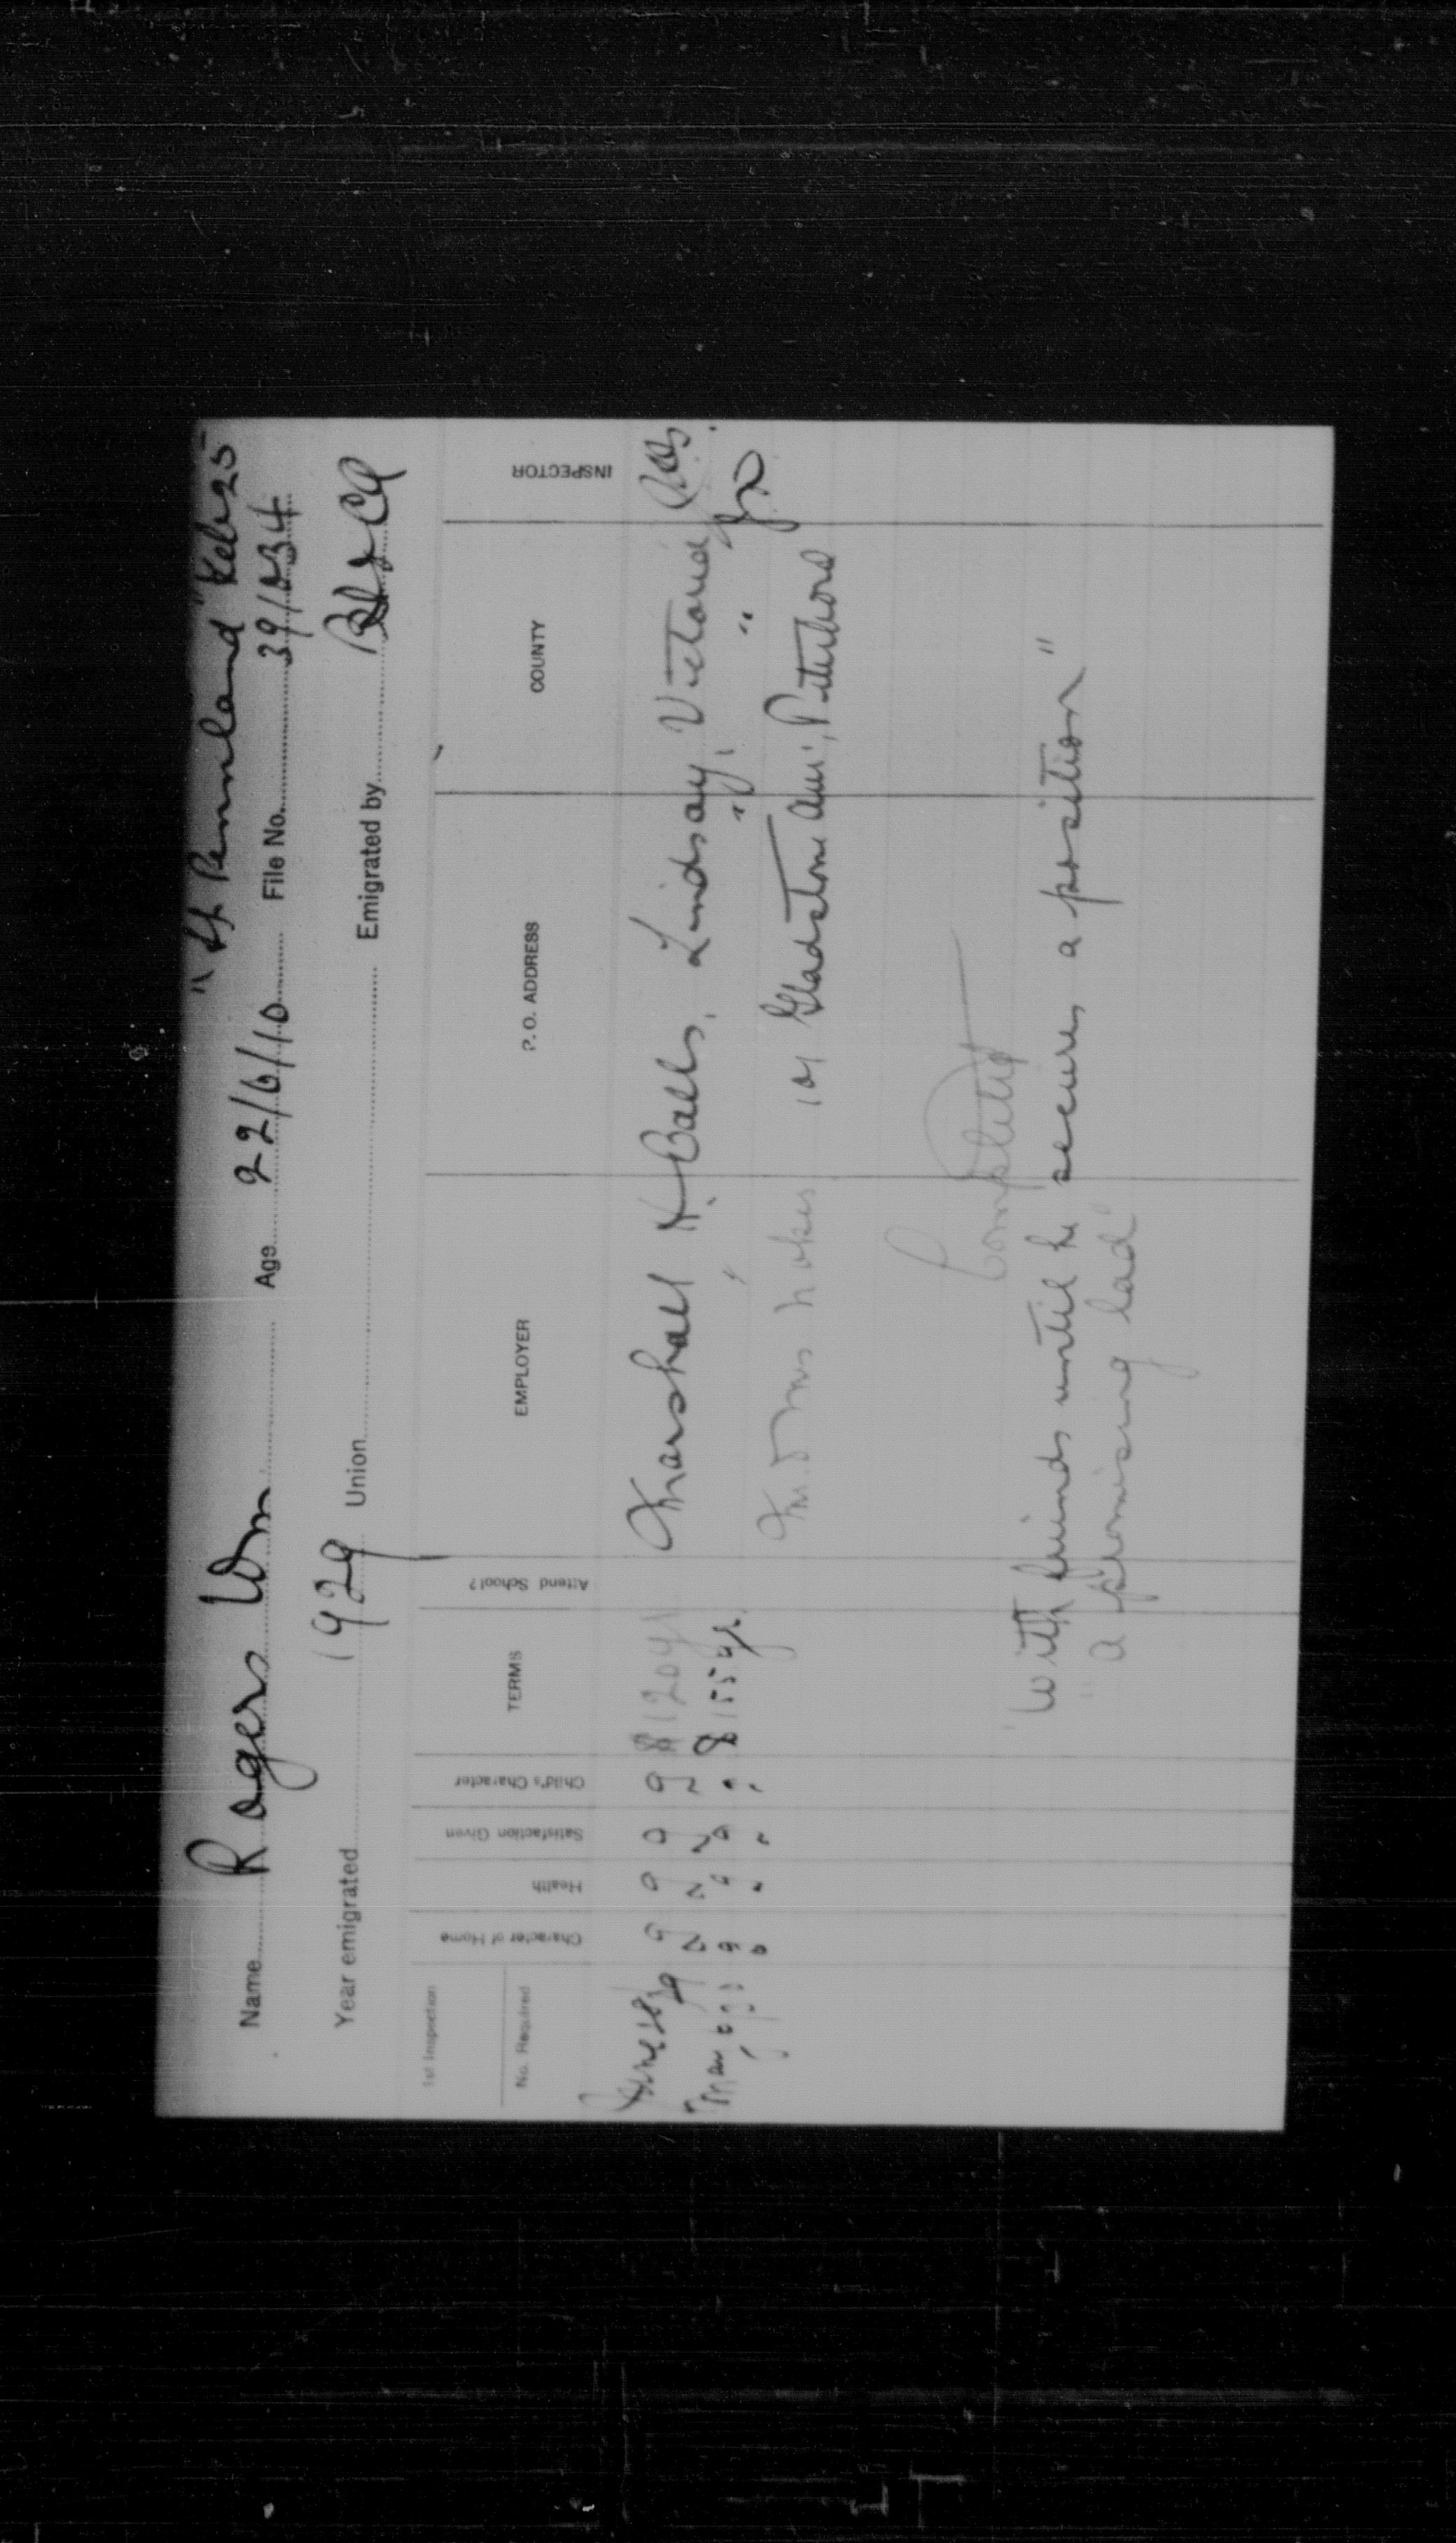 "SS Pennland" Feb 25
Name Rogers Wm Age 22/6/10 File No. 39/034
Year emigrated 1929 Union Emigrated by
1st Inspection
No. Required
Character of Home Health Satisfaction Given Child's Character TERMS Attend School? EMPLOYER P. O. ADDRESS COUNTY INSPECTOR
g g g g $120 yr Marshall Balls, Lindsay, Victoria
May $155 yr " " "
Mrs 101 Gladstone Ave., Peterboro
Completed
"With friends until he secures a position"
"a promising lad"